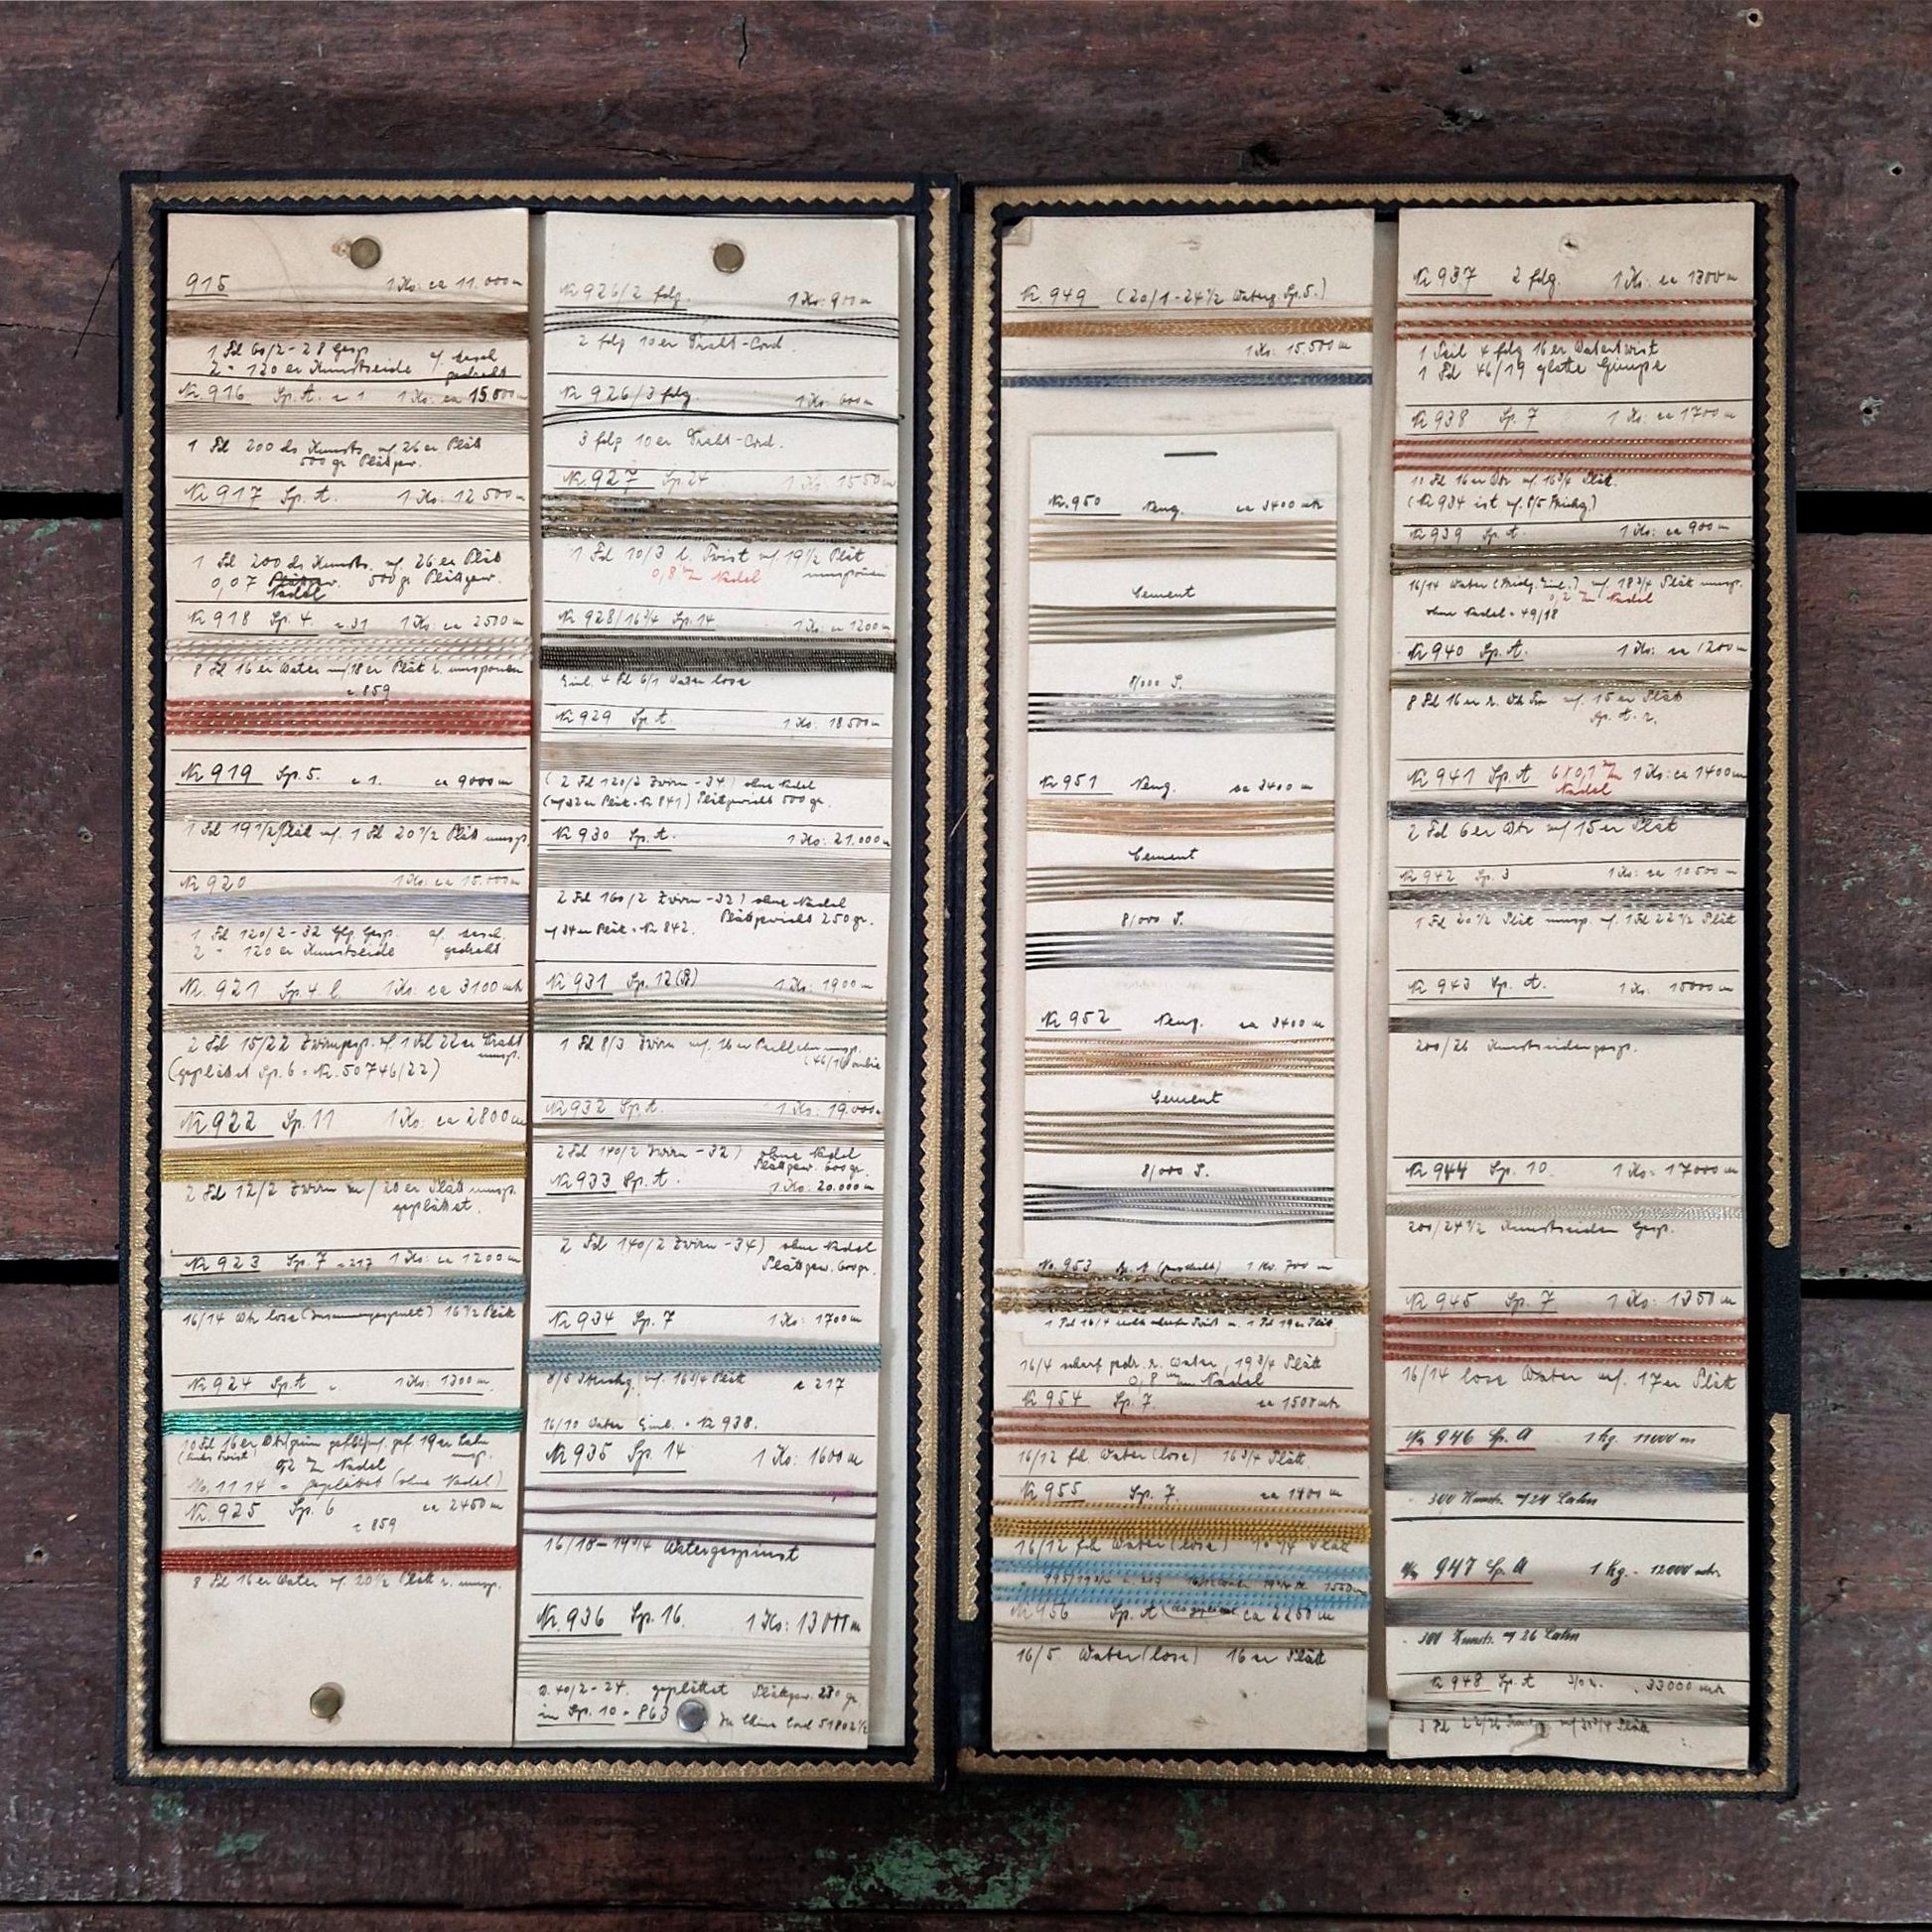 915 1 Ko: ca 11.000m
1 Fd 60/2-28 Gesp.
2 " 120 er Kunstseide gedreht
Nr 916 Sp. A. 1 1 Ko: ca 15.000m
1 Fd 200 ds Kunsts. m/ 26er Plätt
500 gr Plättgew.
Nr 917 Sp. A. 1 Ko: 12 500m
1 Fd 200 ds Kunsts. m/ 26er Plätt
0,07 500 gr Plättgew.
Nadel
Nr 918 Sp. 4. = 31 1 Ko: ca 2500m
8 Fd 16er Water m/ 18er Plätt r. umsponnen
= 859
Nr 919 Sp. 5. = 1. ca 9000m
1 Fd 19 1/2 Plätt m/ 1 Fd 20 1/2 Plätt umsp.
Nr 920 1 Ko: ca 15.000m
1 Fd 120/2-32 Gesp.
2 " 120 er Kunstseide gedreht
Nr. 921 Sp. 4 l. 1 Ko: ca 3100 mtr
2 Fd 15/22 Zwirngesp. m/ 1 Fd 22er Draht
umsp.
(geplättet Sp. 6 = Nr. 50746/22)
Nr. 922 Sp. 11 1 Ko: ca 2800m
2 Fd 12/2 Zwirn m/ 20er Plätt umsp.
geplättet.
Nr 923 Sp. 7 = 217 1 Ko: ca 1200m
16/14 Wtr lose (zusammengespult) 16 1/2 Plätt
Nr 924 Sp. A 1 Ko: 1300m.
10 Fd 16er Wtr grün gefbt m/ gef. 19er Lahn
umsp.
Nadel
No. 1114 = geplättet (ohne Nadel)
Nr. 925 Sp. 6 ca 2450m
= 859
8 Fd 16er Water m/ 20 1/2 Plätt r. umsp.
Nr 926/2 fdg. 1 Ko: 900m
2 fdg 10er Draht-Cord.
Nr 926/3 fdg. 1 Ko: 600m
3 fdg 10er Draht-Cord.
Nr. 927 Sp. 24 1 Ko: 1550m
1 Fd 10/3 l. Twist m/ 19 1/2 Plätt
0,8 m/m Nadel umsponnen
Nr 928/16 3/4 Sp. 14 1 Ko: ca 1200m
Einl. 4 Fd 6/1 Water lose
Nr 929 Sp. A. 1 Ko: 18.500m
(2 Fd 120/2 Zwirn -34) ohne Nadel
(m/ 32er Plätt = Nr 841) Plättgewicht 500 gr.
Nr 930 Sp. A. 1 Ko: 21.000m
2 Fd 160/2 Zwirn -32) ohne Nadel
Plättgewicht 250 gr.
m/ 34er Plätt = Nr 842.
Nr 931 Sp. 12 (B) 1 Ko: 1900m
1 Fd 8/3 Zwirn m/ 16er umsp.
Nr 932 Sp. A. 1 Ko: 19.000m
2 Fd 140/2 Zwirn -32) ohne Nadel
Plättgew. 600 gr.
Nr 933 Sp. A. 1 Ko: 20.000m
2 Fd 140/2 Zwirn -34) ohne Nadel
Plättgew. 600 gr.
Nr 934 Sp. 7 1 Ko: 1700m
8/5 m/ 16 3/4 Plätt = 217
16/10 Water Einl. = Nr 938.
Nr 935 Sp. 14 1 Ko: 1600m
16/18-19 3/4 Watergespinst
Nr. 936 Sp. 16 1 Ko: 13000m
40/2-24. geplättet Plättgew. 230 gr.
in Sp. 10 = 863
Nr. 949 (20/1-24 1/2 Waterg. Sp. 5.)
1 Ko: 15.500m
Nr. 950 Neug. ca 3400 mtr
Cement
8/000 S.
Nr. 951 Neug. ca 3400 m
Cement
8/000 S.
Nr. 952 Neug. ca 3400 m
Cement
8/000 S.
No. 953 Sp. A 1 Ko. 700 m
16/4 scharf gedr. r. Water, 19 3/4 Plätt
0,8 m/m Nadel
Nr 954 Sp. 7. ca 1500 mtr
16/12 fd. Water (lose) 16 3/4 Plätt.
Nr 955 Sp. 7. ca 1400 m
16/12 fd. Water (lose) Plätt
Nr 956 Sp. A ca 2200 m
16/5 Water (lose) 16er Plätt
Nr 937 2 fdg. 1 Ko: ca 1300m
1 Teil 4 fdg 16er Watertwist
1 Fd 46/19 glatte Gimpe
Nr 938 Sp. 7 1 Ko: ca 1700m
10 Fd 16er Wtr m/ 16 3/4 Plätt.
(Nr 934 ist m/ 8/5
Nr 939 Sp. A. 1 Ko: ca 900m
16/14 Water m/ 18 3/4 Plätt umsp.
0,2 m/m Nadel
ohne Nadel = 49/18
Nr 940 Sp. A. 1 Ko: ca 1200m
8 Fd 16er r. m/ 15er Plätt
Sp. A. r.
Nr 941 Sp. A 1 Ko: ca 1400m
Nadel
2 Fd 6er Wtr m/ 15er Plätt
Nr 942 Sp. 3 1 Ko: ca 10500m
1 Fd 20 1/2 Plätt umsp. m/ 1 Fd 22 1/2 Plätt
Nr 943 Sp. A. 1 Ko: 15000m
200/26 Kunstseidengesp.
Nr 944 Sp. 10. 1 Ko: 17000m
200/24 1/2 Kunstseiden Gesp.
Nr 945 Sp. 7 1 Ko: 1350m
16/14 lose Water m/ 17er Plätt
Nr 946 Sp. A 1 kg. 11000 m
300 Kunsts. m/ 24 Lahn
Nr 947 Sp. A 1 Kg. - 12000 mtr
300 Kunsts. m/ 26 Lahn
Nr 948 Sp. A 33000 mtr